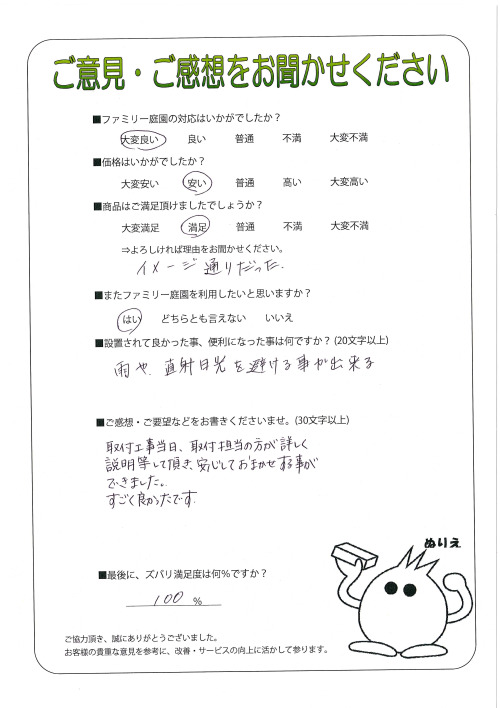 ご意見・ご感想をお聞かせください
■ファミリー庭園の対応はいかがでしたか？
大変良い 良い 普通 不満 大変不満
■価格はいかがでしたか？
大変安い 安い 普通 高い 大変高い
■商品はご満足頂けましたでしょうか？
大変満足 満足 普通 不満 大変不満
⇒よろしければ理由をお聞かせください。
イメージ通りだった.
■またファミリー庭園を利用したいと思いますか？
はい どちらとも言えない いいえ
■設置されて良かった事、便利になった事は何ですか？(20文字以上)
雨や、直射日光を避ける事が出来る
■ご感想・ご要望などをお書きくださいませ。(30文字以上)
取付工事当日、取付担当の方が詳しく
説明等して頂き、安心しておまかせする事が
できました。
すごく良かったです.
ぬりえ
■最後に、ズバリ満足度は何％ですか？
100 %
ご協力頂き、誠にありがとうございました。
お客様の貴重な意見を参考に、改善・サービスの向上に活かして参ります。